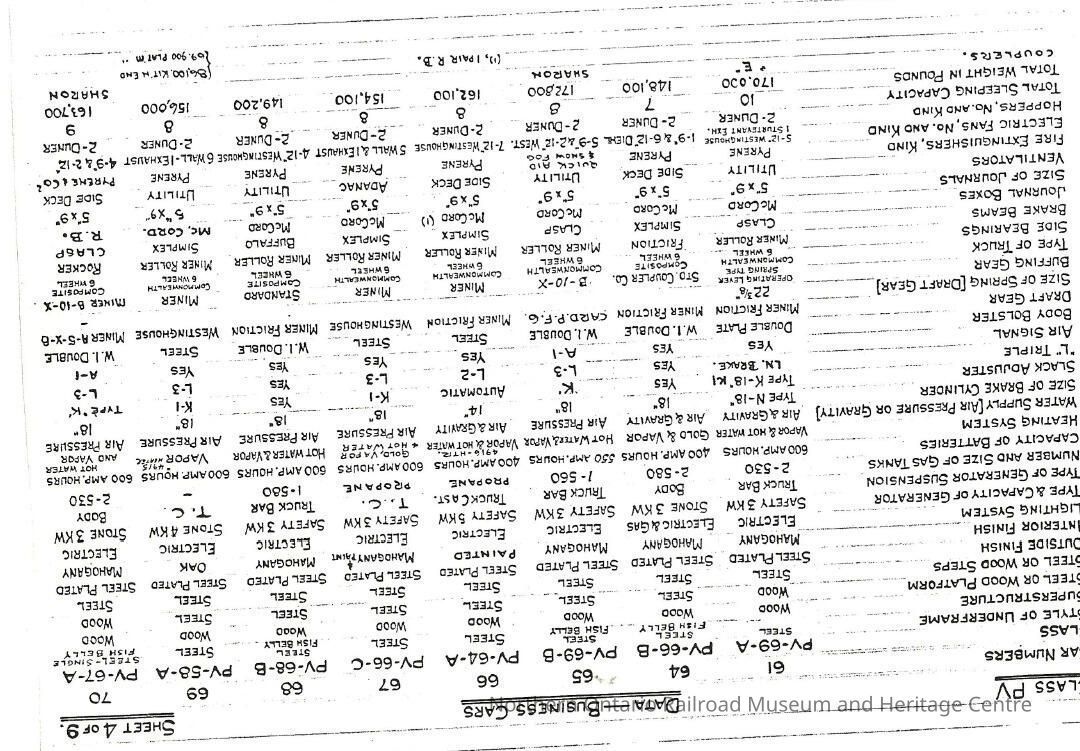 LASS PV DATA - BUSINESS CARS SHEET 4 OF 9.
AR NUMBERS 61 64 65 66 67 68 69 70
LASS PV-69-A PV-66-B PV-69-B PV-64-A PV-66-C PV-68-B PV-58-A PV-67-A
TYLE OF UNDERFRAME STEEL STEEL FISH BELLY STEEL FISH BELLY STEEL STEEL STEEL FISH BELLY WOOD STEEL-SINGLE FISH BELLY
SUPERSTRUCTURE WOOD WOOD WOOD STEEL STEEL WOOD WOOD WOOD
STEEL OR WOOD PLATFORM WOOD STEEL STEEL STEEL STEEL STEEL STEEL WOOD
STEEL OR WOOD STEPS STEEL STEEL STEEL STEEL STEEL STEEL STEEL STEEL
OUTSIDE FINISH STEEL PLATED STEEL PLATED STEEL PLATED STEEL PLATED STEEL PLATED STEEL PLATED STEEL PLATED STEEL PLATED
INTERIOR FINISH MAHOGANY MAHOGANY MAHOGANY PAINTED MAHOGANY & PAINT MAHOGANY OAK MAHOGANY
LIGHTING SYSTEM ELECTRIC ELECTRIC & GAS ELECTRIC ELECTRIC ELECTRIC ELECTRIC ELECTRIC ELECTRIC
TYPE & CAPACITY OF GENERATOR SAFETY 3 KW STONE 3 KW SAFETY 3 KW SAFETY 5 KW SAFETY 3 KW SAFETY 3 KW STONE 4 KW STONE 3 KW
TYPE OF GENERATOR SUSPENSION TRUCK BAR BODY TRUCK BAR TRUCK CAST. T. C. TRUCK BAR T. C. BODY
NUMBER AND SIZE OF GAS TANKS 2-530 2-580 1-560 PROPANE PROPANE 1-580 - 2-530
CAPACITY OF BATTERIES 600 AMP. HOURS 400 AMP. HOURS 550 AMP. HOURS 400 AMP. HOURS 600 AMP. HOURS 600 AMP. HOURS 600 AMP. HOURS 600 AMP. HOURS
HEATING SYSTEM VAPOR & HOT WATER GOLD & VAPOR HOT WATER & VAPOR VAPOR & HOT WATER #4916-HTR. GOLD VAPOR & HOT WATER HOT WATER & VAPOR VAPOR #4915 HEATER HOT WATER AND VAPOR
WATER SUPPLY [AIR PRESSURE OR GRAVITY] AIR & GRAVITY AIR & GRAVITY AIR PRESSURE AIR & GRAVITY AIR PRESSURE AIR PRESSURE AIR PRESSURE AIR PRESSURE
SIZE OF BRAKE CYLINDER TYPE N-18" 18" 18" 14" 18" 18" 18" 18"
SLACK ADJUSTER TYPE K-18" "K" YES "K" AUTOMATIC K-1 YES K-1 TYPE "K"
"L" TRIPLE LN. BRAKE. YES L-3 L-2 L-3 YES L-3 L-3
AIR SIGNAL YES YES A-1 YES YES YES YES A-1
BODY BOLSTER DOUBLE PLATE W.I. DOUBLE W.I. DOUBLE STEEL STEEL W.I. DOUBLE STEEL W.I. DOUBLE
DRAFT GEAR MINER FRICTION MINER FRICTION CARD P.F.G. MINER FRICTION WESTINGHOUSE MINER FRICTION WESTINGHOUSE MINER A-5-X-B
SIZE OF SPRING [DRAFT GEAR] 22 3/8" -
BUFFING GEAR OPERATING LEVER SPRING TYPE STD. COUPLER CO. B-10-X MINER MINER STANDARD MINER MINER B-10-X
TYPE OF TRUCK COMMONWEALTH 6 WHEEL COMPOSITE 6 WHEEL COMMONWEALTH 6 WHEEL COMMONWEALTH 6 WHEEL COMMONWEALTH 6 WHEEL COMPOSITE 6 WHEEL COMMONWEALTH 6 WHEEL COMPOSITE 6 WHEEL
SIDE BEARINGS MINER ROLLER FRICTION MINER ROLLER MINER ROLLER MINER ROLLER MINER ROLLER MINER ROLLER ROCKER
BRAKE BEAMS CLASP SIMPLEX CLASP SIMPLEX SIMPLEX BUFFALO SIMPLEX CLASP
JOURNAL BOXES McCORD McCORD McCORD McCORD (1) McCORD McCORD Mc, CORD. R. B.
SIZE OF JOURNALS 5"x9" 5"x9" 5"x9" 5"x9" 5"x9" 5"x9" 5"x9" 5"x9"
VENTILATORS UTILITY SIDE DECK UTILITY SIDE DECK ADANAC UTILITY UTILITY SIDE DECK
FIRE EXTINGUISHERS, KIND PYRENE PYRENE QUICK AID & SNOW FOG PYRENE PYRENE PYRENE PYRENE PYRENE & CO2
ELECTRIC FANS, NO. AND KIND 5-12" WESTINGHOUSE 1 STURTEVANT EXH. 1-9" & 6-12" DIEHL 5-9" & 2-12" WEST. 7-12" WESTINGHOUSE 5 WALL & 1 EXHAUST 4-12" WESTINGHOUSE 6 WALL-1 EXHAUST 4-9" & 2-12"
HOPPERS, NO. AND KIND 2-DUNER 2-DUNER 2-DUNER 2-DUNER 2-DUNER 2-DUNER 2-DUNER 2-DUNER
TOTAL SLEEPING CAPACITY 10 7 8 8 8 8 8 9
TOTAL WEIGHT IN POUNDS 170,000 148,100 172,800 162,100 154,100 149,200 156,000 163,700
COUPLERS. "E" SHARON SHARON
(1), 1 PAIR R.B. {86,100. KIT'N END
{69,900 PLAT'M "
Northern Ontario Railroad Museum and Heritage Centre